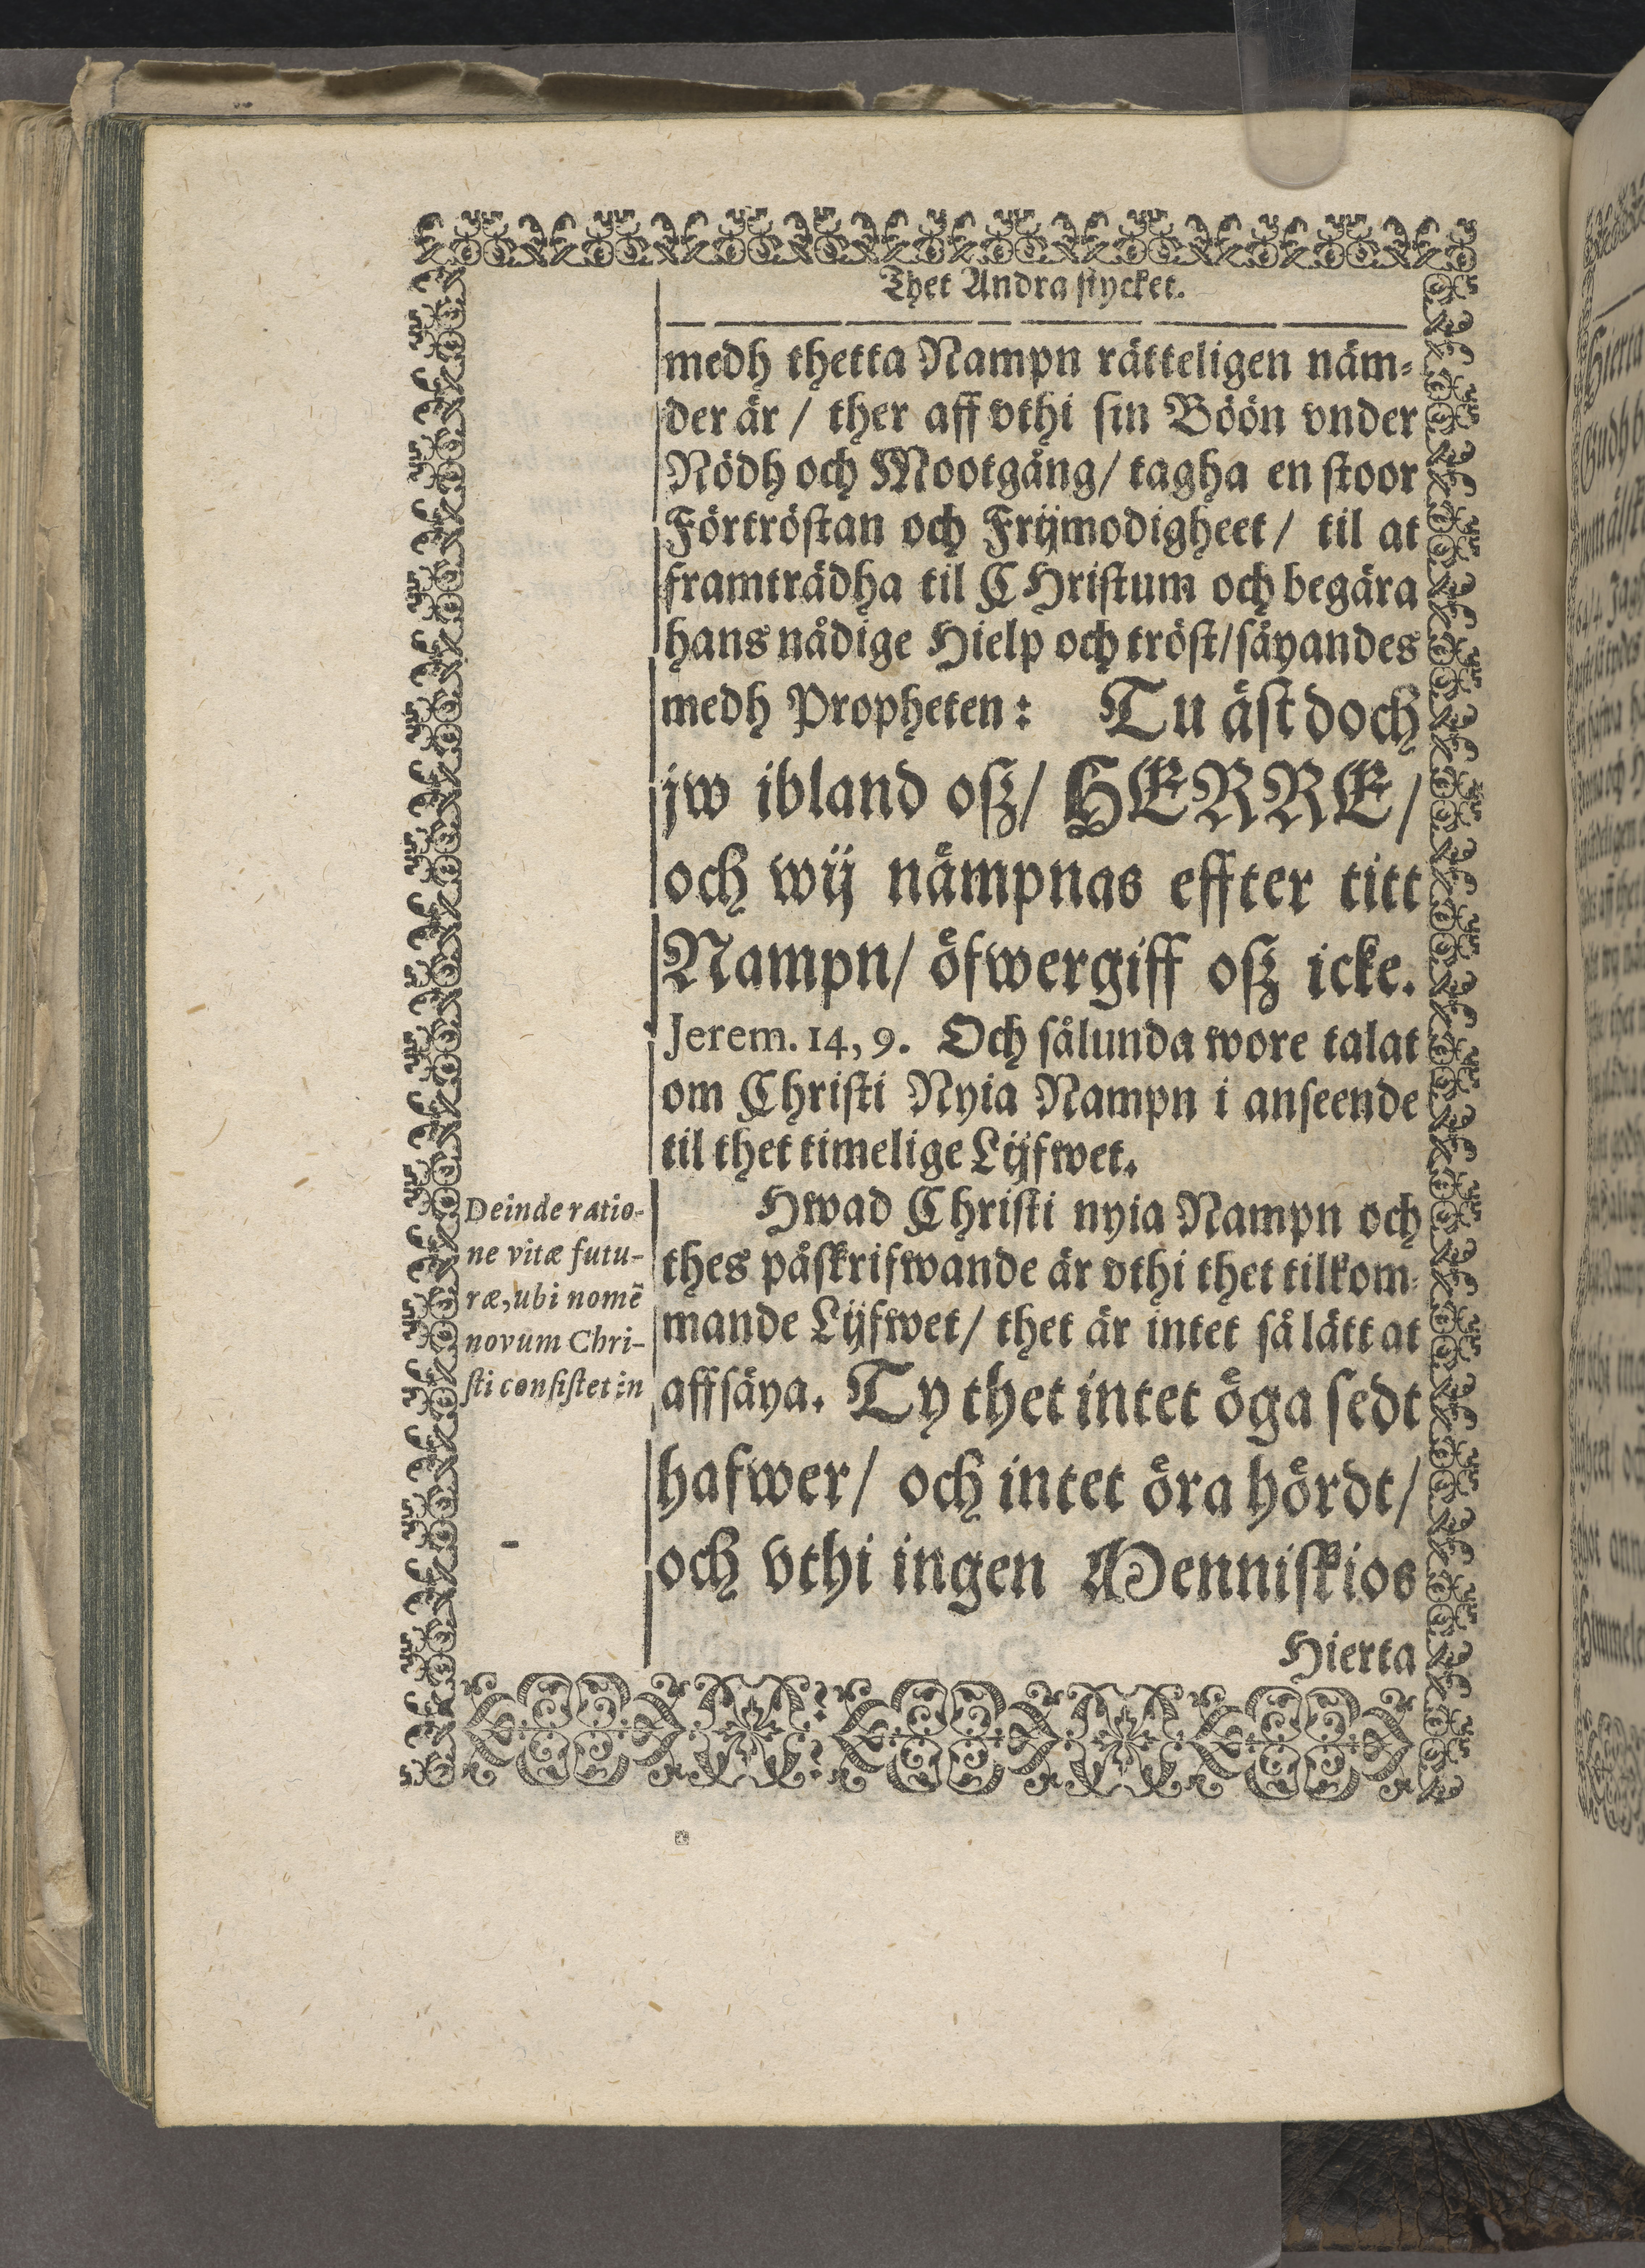 Thet Andra stycket.
medh thetta Nampn rätteligen näm-
der är / ther aff vthi sin Böön vnder
Nödh och Mootgång / tagha en stoor
Förtröstan och Frijmodigheet / til at
framträdha til CHristum och begära
hans nådige Hielp och tröst / säyandes
medh Propheten: Tu äst doch
jw ibland osz / HERRE /
och wij nämpnas effter titt
Nampn / öfwergiff osz icke.
Jerem. 14, 9. Och sålunda wore talat
om Christi Nyia Nampn i anseende
til thet timelige Lijfwet.
Hwad Christi nyia Nampn och
thes påskrifwande är vthi thet tilkom-
mande Lijfwet / thet är intet så lätt at
affsäya. Ty thet intet öga sedt
hafwer / och intet öra hördt /
och vthi ingen Menniskios
Hierta
Deinde ratio-
ne vitæ futu-
ræ, ubi nomẽ
novum Chri-
sti consistet in